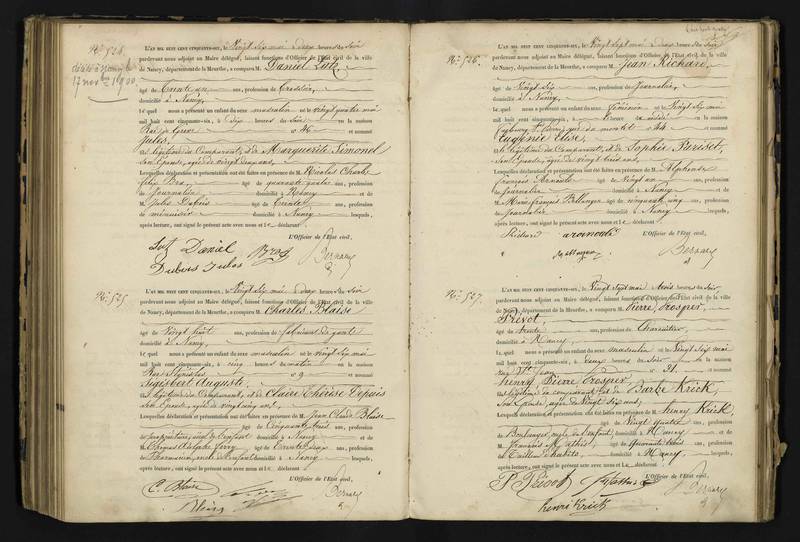 No. 524.
décédé à Nancy le
17 nov. 1900.
L'AN MIL HUIT CENT CINQUANTE-SIX, le Vingt six mai à deux heures du Soir
pardevant nous adjoint au Maire délégué, faisant fonctions d'Officier de l'État civil de la ville
de Nancy, département de la Meurthe, a comparu M. Daniel
âgé de trente un ans, profession de
domicilié à Nancy,
lequel nous a présenté un enfant du sexe masculin né le vingt quatre mai
mil huit cent cinquante-six, à six heures du Soir en la maison
no 46 et nommé
Jules,
fils légitime du Comparant, et de Marguerite Simonel
son épouse, âgée de vingt deux ans,
Lesquelles déclaration et présentation ont été faites en présence de M. Nicolas Charles
âgé de quarante quatre ans, profession
de Journalier, domicilié à Nancy et de
M. Jules Dubois âgé de trente ans, profession
de menuisier domicilié à Nancy lesquels,
après lecture, ont signé le présent acte avec nous et le déclarant
L'Officier de l'État civil,
Daniel
Dubois Jules
Bernary
No. 525.
L'AN MIL HUIT CENT CINQUANTE-SIX, le Vingt six mai à deux heures du Soir
pardevant nous adjoint au Maire délégué, faisant fonctions d'Officier de l'État civil de la ville
de Nancy, département de la Meurthe, a comparu M. Charles Blaise
âgé de Vingt huit ans, profession de fabricant de
domicilié à Nancy,
lequel nous a présenté un enfant du sexe masculin né le vingt six mai
mil huit cent cinquante-six, à cinq heures du matin en la maison
Rue no 9 et nommé
Sigisbert Auguste,
fils légitime du Comparant, et de Claire Thérèse
son épouse, âgée de vingt cinq ans,
Lesquelles déclaration et présentation ont été faites en présence de M. Jean Claude Blaise
âgé de Cinquante trois ans, profession
de propriétaire, aïeul de l'enfant domicilié à Nancy et de
M. âgé de trente deux ans, profession
de oncle de l'enfant domicilié à Nancy lesquels,
après lecture, ont signé le présent acte avec nous et le déclarant
L'Officier de l'État civil,
C. Blaise
Blaise
Bernary
No. 526.
L'AN MIL HUIT CENT CINQUANTE-SIX, le Vingt sept mai à deux heures du Soir
pardevant nous adjoint au Maire délégué, faisant fonctions d'Officier de l'État civil de la ville
de Nancy, département de la Meurthe, a comparu M. Jean Richard,
âgé de Vingt six ans, profession de Journalier,
domicilié à Nancy,
lequel nous a présenté un enfant du sexe féminin né le Vingt six mai
mil huit cent cinquante-six, à heure de midi en la maison
faubourg St Pierre no 44 et nommé
Eugénie Elise,
fille légitime du Comparant, et de Sophie Parisot,
son épouse, âgée de vingt trois ans,
Lesquelles déclaration et présentation ont été faites en présence de M. Alphonse
François Arnould âgé de Vingt un ans, profession
de Journalier domicilié à Nancy et de
M. Marie François Bellanger âgé de cinquante cinq ans, profession
de Journalier domicilié à Nancy lesquels,
après lecture, ont signé le présent acte avec nous et le déclarant
L'Officier de l'État civil,
Richard arnould
Bernary
No. 527.
L'AN MIL HUIT CENT CINQUANTE-SIX, le Vingt sept mai à trois heures du Soir,
pardevant nous adjoint au Maire délégué, faisant fonctions d'Officier de l'État civil de la ville
de Nancy, département de la Meurthe, a comparu M. Pierre, Prosper,
Prévot,
âgé de trente ans, profession de Charcutier,
domicilié à Nancy,
lequel nous a présenté un enfant du sexe masculin né le Vingt six mai
mil huit cent cinquante-six, à deux heures du soir en la maison
rue St Jean no 31. et nommé
henry Pierre Prosper,
fils légitime du comparant et de Barbe Krick,
son épouse, âgée de Vingt six ans,
Lesquelles déclaration et présentation ont été faites en présence de M. henry Krick,
âgé de Vingt quatre ans, profession
de Boulanger, oncle de l'enfant, domicilié à Nancy et de
M. François Mathis âgé de quarante trois ans, profession
de Tailleur d'habits domicilié à Nancy, lesquels,
après lecture, ont signé le présent acte avec nous et le déclarant
L'Officier de l'État civil,
P Prévot
henri Krick
Bernary